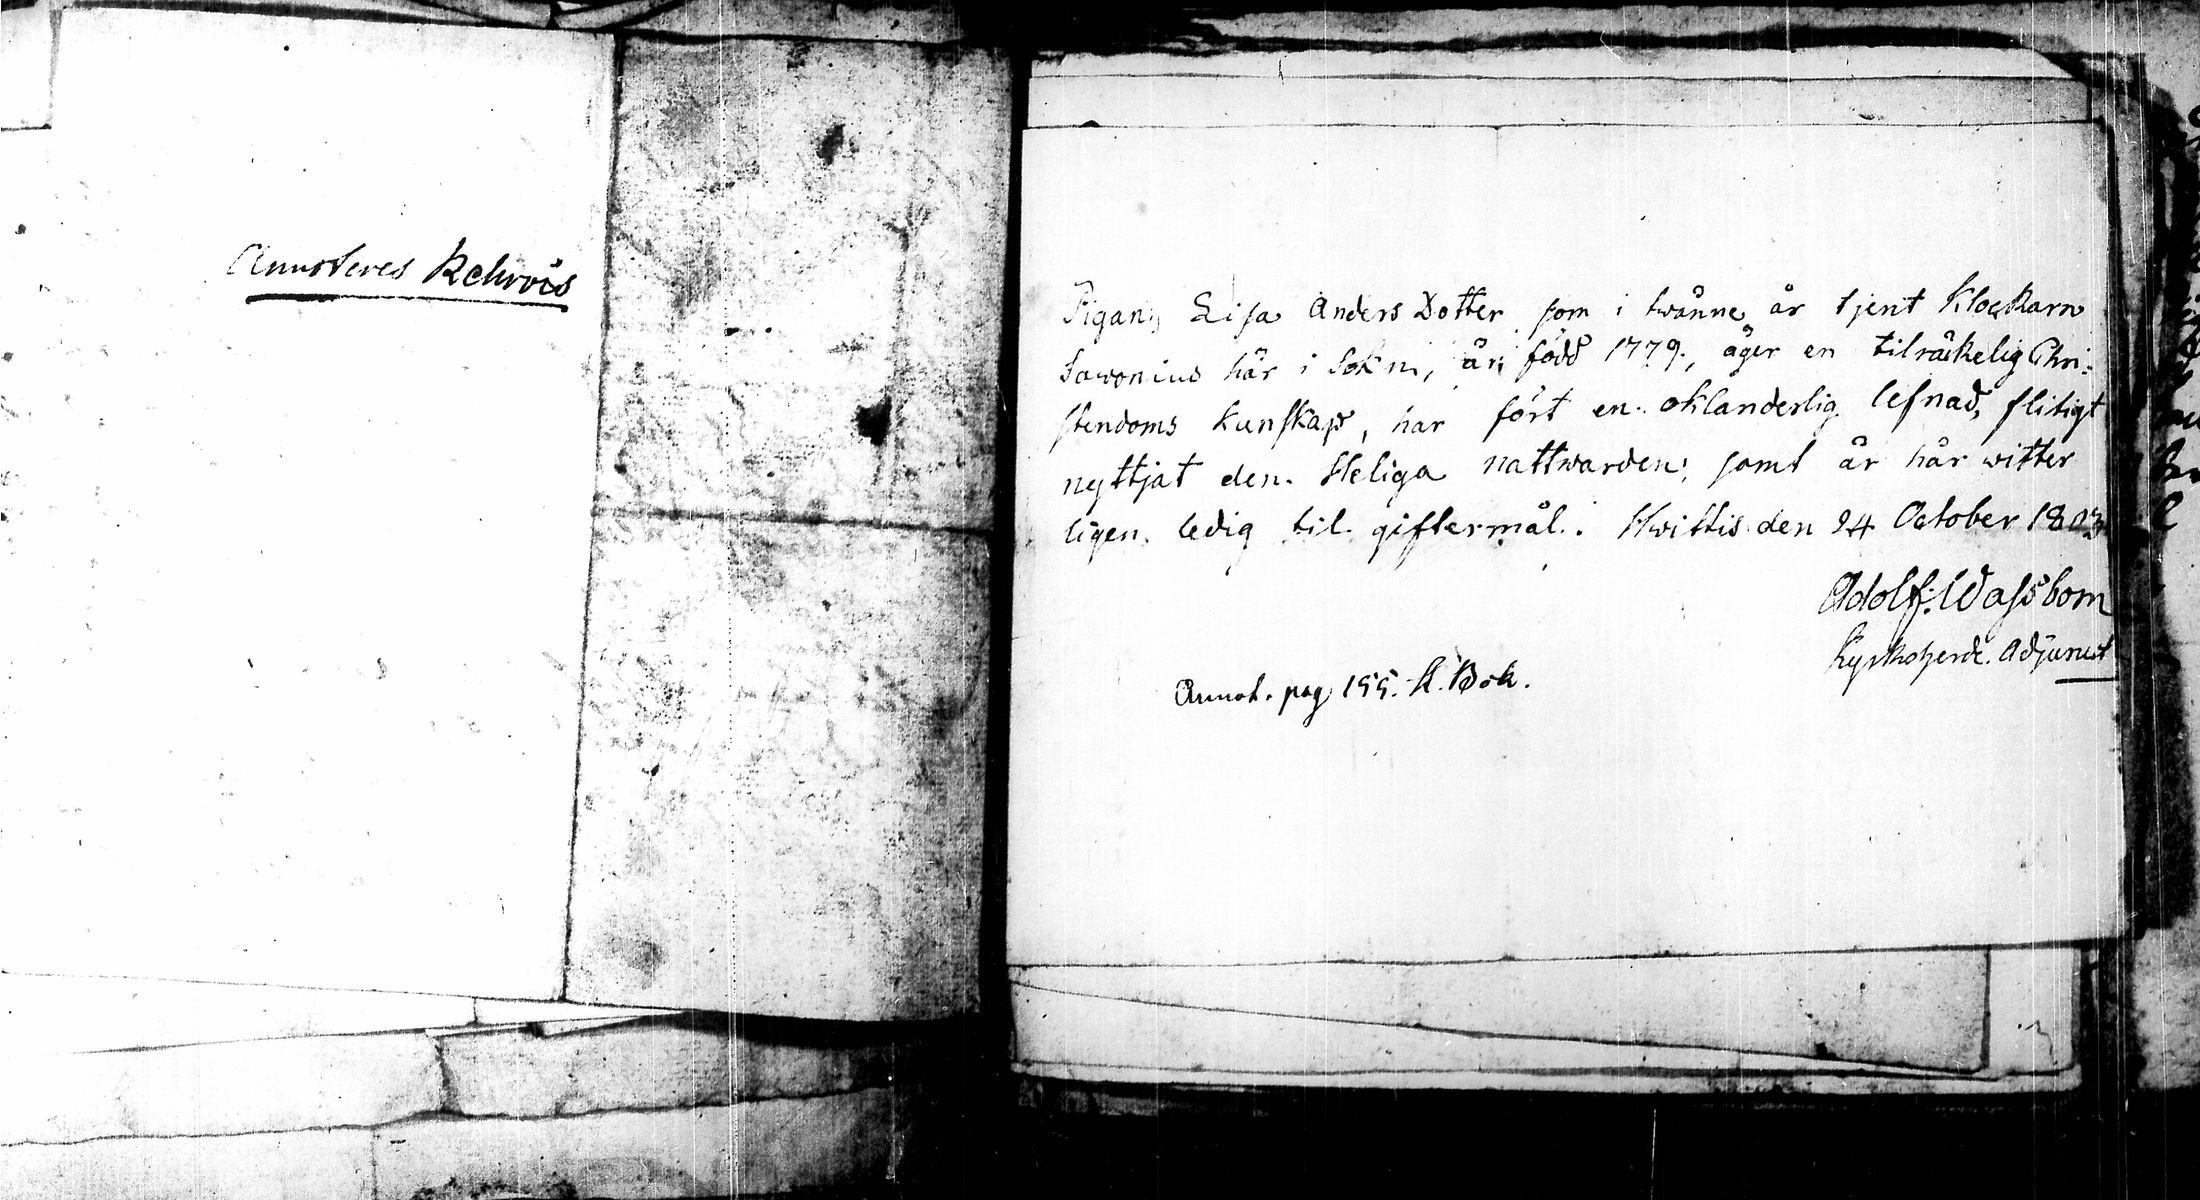 Annoteres Kehrois
Pigan Lisa Anders Dotter som i twänne år tjent Klockarn
Sawonius här i Sokn, är född 1779, äger en tilräckelig Chri-
stendoms kunskap, har fört en oklanderlig lefnad, flitigt
nyttjat den Heliga nattwarden, samt är här witter
ligen ledig til giftermål. Hwittis den 24 October 1803
Adolf: Wassbom
Kyrkoherde Adjunct
Annot. pag 155. K. Bok.